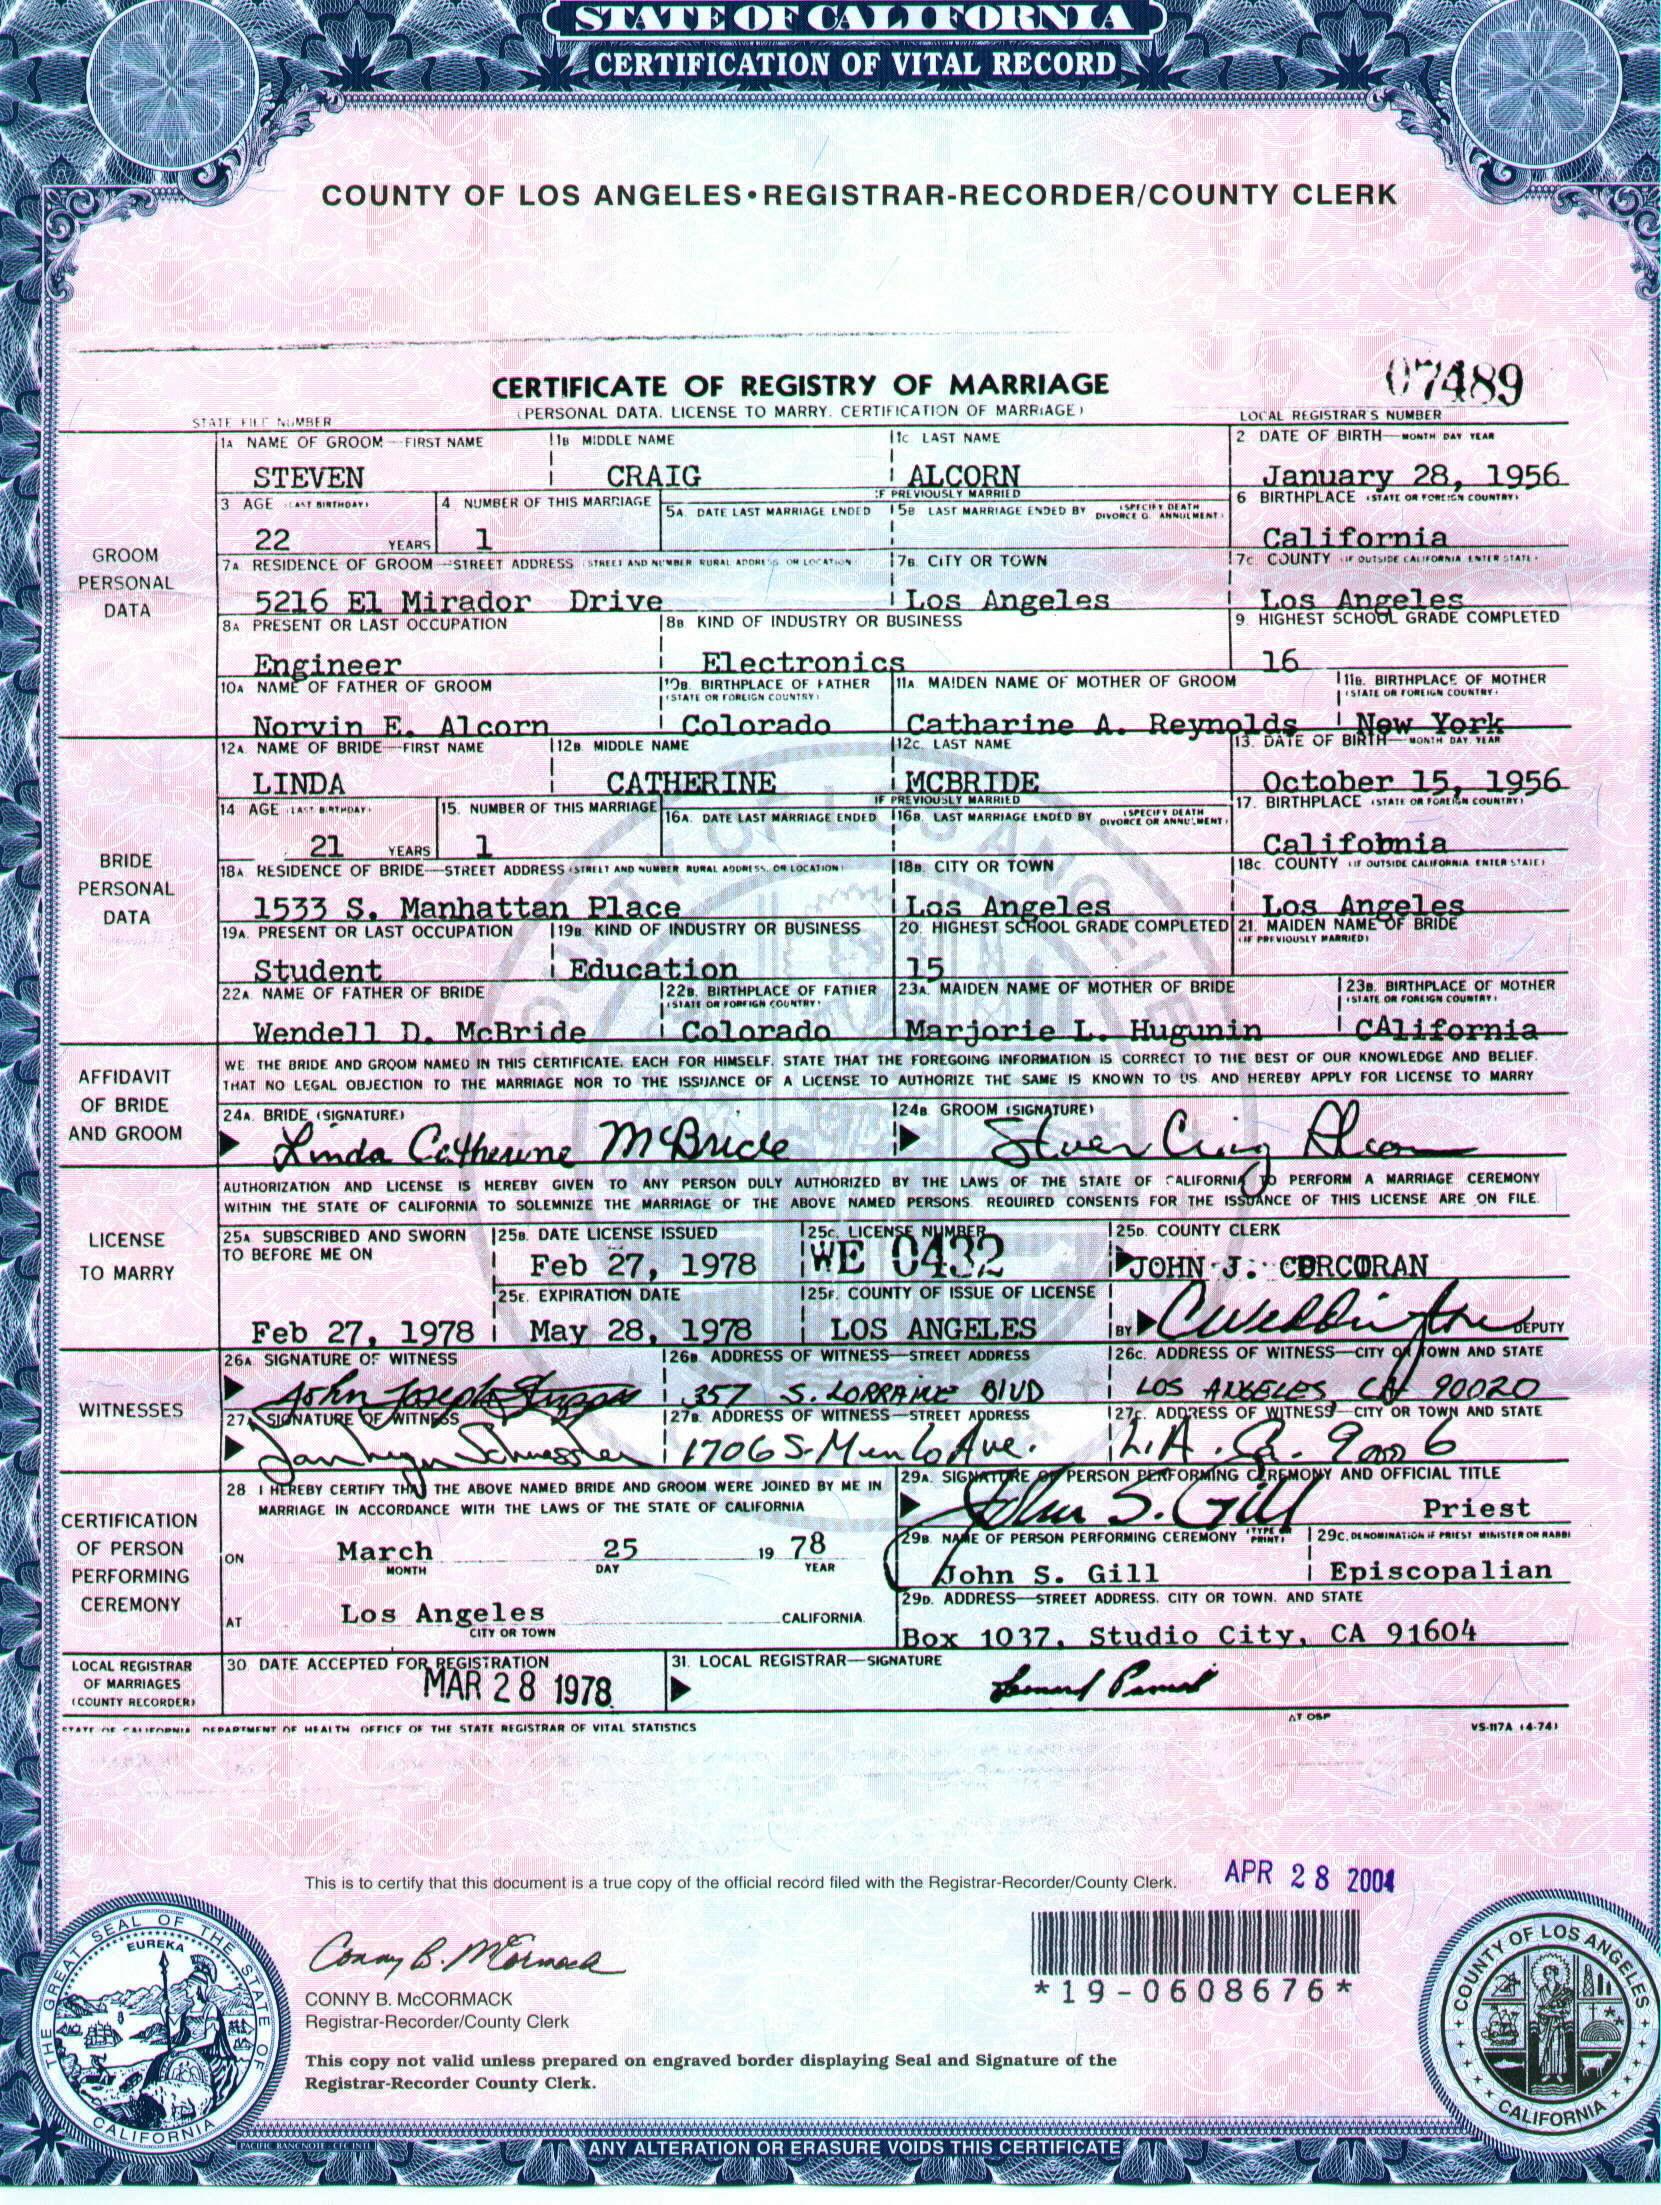 STATE OF CALIFORNIA
CERTIFICATION OF VITAL RECORD
COUNTY OF LOS ANGELES • REGISTRAR-RECORDER/COUNTY CLERK
CERTIFICATE OF REGISTRY OF MARRIAGE 07489
(PERSONAL DATA. LICENSE TO MARRY. CERTIFICATION OF MARRIAGE)
STATE FILE NUMBER LOCAL REGISTRAR'S NUMBER
GROOM PERSONAL DATA
1A NAME OF GROOM—FIRST NAME 1B MIDDLE NAME 1C LAST NAME 2 DATE OF BIRTH—MONTH DAY YEAR
STEVEN CRAIG ALCORN January 28, 1956
3 AGE (LAST BIRTHDAY) 4 NUMBER OF THIS MARRIAGE IF PREVIOUSLY MARRIED 5A. DATE LAST MARRIAGE ENDED 5B LAST MARRIAGE ENDED BY (SPECIFY DEATH DIVORCE O. ANNULMENT) 6 BIRTHPLACE (STATE OR FOREIGN COUNTRY)
22 YEARS 1 California
7A RESIDENCE OF GROOM—STREET ADDRESS (STREET AND NUMBER RURAL ADDRESS OR LOCATION) 7B. CITY OR TOWN 7C COUNTY (IF OUTSIDE CALIFORNIA ENTER STATE)
5216 El Mirador Drive Los Angeles Los Angeles
8A PRESENT OR LAST OCCUPATION 8B KIND OF INDUSTRY OR BUSINESS 9. HIGHEST SCHOOL GRADE COMPLETED
Engineer Electronics 16
10A NAME OF FATHER OF GROOM 10B. BIRTHPLACE OF FATHER (STATE OR FOREIGN COUNTRY) 11A. MAIDEN NAME OF MOTHER OF GROOM 11B. BIRTHPLACE OF MOTHER (STATE OR FOREIGN COUNTRY)
Norvin E. Alcorn Colorado Catharine A. Reynolds New York
BRIDE PERSONAL DATA
12A NAME OF BRIDE—FIRST NAME 12B. MIDDLE NAME 12C. LAST NAME 13. DATE OF BIRTH—MONTH DAY YEAR
LINDA CATHERINE MCBRIDE October 15, 1956
14 AGE (LAST BIRTHDAY) 15. NUMBER OF THIS MARRIAGE IF PREVIOUSLY MARRIED 16A. DATE LAST MARRIAGE ENDED 16B. LAST MARRIAGE ENDED BY (SPECIFY DEATH DIVORCE OR ANNULMENT) 17. BIRTHPLACE (STATE OR FOREIGN COUNTRY)
21 YEARS 1 Califobnia
18A RESIDENCE OF BRIDE—STREET ADDRESS (STREET AND NUMBER RURAL ADDRESS, OR LOCATION) 18B. CITY OR TOWN 18C. COUNTY (IF OUTSIDE CALIFORNIA ENTER STATE)
1533 S. Manhattan Place Los Angeles Los Angeles
19A. PRESENT OR LAST OCCUPATION 19B. KIND OF INDUSTRY OR BUSINESS 20. HIGHEST SCHOOL GRADE COMPLETED 21. MAIDEN NAME OF BRIDE (IF PREVIOUSLY MARRIED)
Student Education 15
22A. NAME OF FATHER OF BRIDE 22B. BIRTHPLACE OF FATHER (STATE OR FOREIGN COUNTRY) 23A. MAIDEN NAME OF MOTHER OF BRIDE 23B. BIRTHPLACE OF MOTHER (STATE OR FOREIGN COUNTRY)
Wendell D. McBride Colorado Marjorie L. Hugunin CAlifornia
AFFIDAVIT OF BRIDE AND GROOM
WE. THE BRIDE AND GROOM NAMED IN THIS CERTIFICATE, EACH FOR HIMSELF, STATE THAT THE FOREGOING INFORMATION IS CORRECT TO THE BEST OF OUR KNOWLEDGE AND BELIEF.
THAT NO LEGAL OBJECTION TO THE MARRIAGE NOR TO THE ISSUANCE OF A LICENSE TO AUTHORIZE THE SAME IS KNOWN TO US AND HEREBY APPLY FOR LICENSE TO MARRY
24A. BRIDE (SIGNATURE) 24B GROOM (SIGNATURE)
Linda Catherine McBride Steven Craig Alcorn
LICENSE TO MARRY
AUTHORIZATION AND LICENSE IS HEREBY GIVEN TO ANY PERSON DULY AUTHORIZED BY THE LAWS OF THE STATE OF CALIFORNIA TO PERFORM A MARRIAGE CEREMONY
WITHIN THE STATE OF CALIFORNIA TO SOLEMNIZE THE MARRIAGE OF THE ABOVE NAMED PERSONS. REQUIRED CONSENTS FOR THE ISSUANCE OF THIS LICENSE ARE ON FILE.
25A SUBSCRIBED AND SWORN TO BEFORE ME ON 25B. DATE LICENSE ISSUED 25C. LICENSE NUMBER 25D. COUNTY CLERK
Feb 27, 1978 WE 0432 JOHN J. CORCORAN
25E. EXPIRATION DATE 25F. COUNTY OF ISSUE OF LICENSE
Feb 27, 1978 May 28, 1978 LOS ANGELES BY DEPUTY
WITNESSES
26A SIGNATURE OF WITNESS 26B. ADDRESS OF WITNESS—STREET ADDRESS 26C. ADDRESS OF WITNESS—CITY OR TOWN AND STATE
John Joseph 357 S. LORRAINE BLVD LOS ANGELES, CA 90020
27A SIGNATURE OF WITNESS 27B. ADDRESS OF WITNESS—STREET ADDRESS 27C. ADDRESS OF WITNESS—CITY OR TOWN AND STATE
1706 S. Menlo Ave. L.A. Ca. 90006
CERTIFICATION OF PERSON PERFORMING CEREMONY
28. I HEREBY CERTIFY THAT THE ABOVE NAMED BRIDE AND GROOM WERE JOINED BY ME IN
MARRIAGE IN ACCORDANCE WITH THE LAWS OF THE STATE OF CALIFORNIA
29A. SIGNATURE OF PERSON PERFORMING CEREMONY AND OFFICIAL TITLE
John S. Gill Priest
ON March 25 19 78
MONTH DAY YEAR
29B. NAME OF PERSON PERFORMING CEREMONY (TYPE OR PRINT) 29C. DENOMINATION IF PRIEST MINISTER OR RABBI
John S. Gill Episcopalian
AT Los Angeles CALIFORNIA
CITY OR TOWN
29D. ADDRESS—STREET ADDRESS, CITY OR TOWN, AND STATE
Box 1037, Studio City, CA 91604
LOCAL REGISTRAR OF MARRIAGES (COUNTY RECORDER)
30 DATE ACCEPTED FOR REGISTRATION 31. LOCAL REGISTRAR—SIGNATURE
MAR 28 1978
STATE OF CALIFORNIA DEPARTMENT OF HEALTH OFFICE OF THE STATE REGISTRAR OF VITAL STATISTICS AT OSP VS-117A (4-74)
This is to certify that this document is a true copy of the official record filed with the Registrar-Recorder/County Clerk. APR 28 2004
Conny B. McCormack
*19-0608676*
CONNY B. McCORMACK
Registrar-Recorder/County Clerk
This copy not valid unless prepared on engraved border displaying Seal and Signature of the
Registrar-Recorder County Clerk.
THE GREAT SEAL OF THE STATE OF CALIFORNIA
EUREKA
COUNTY OF LOS ANGELES
CALIFORNIA
PACIFIC BANKNOTE - CTC INTL
ANY ALTERATION OR ERASURE VOIDS THIS CERTIFICATE